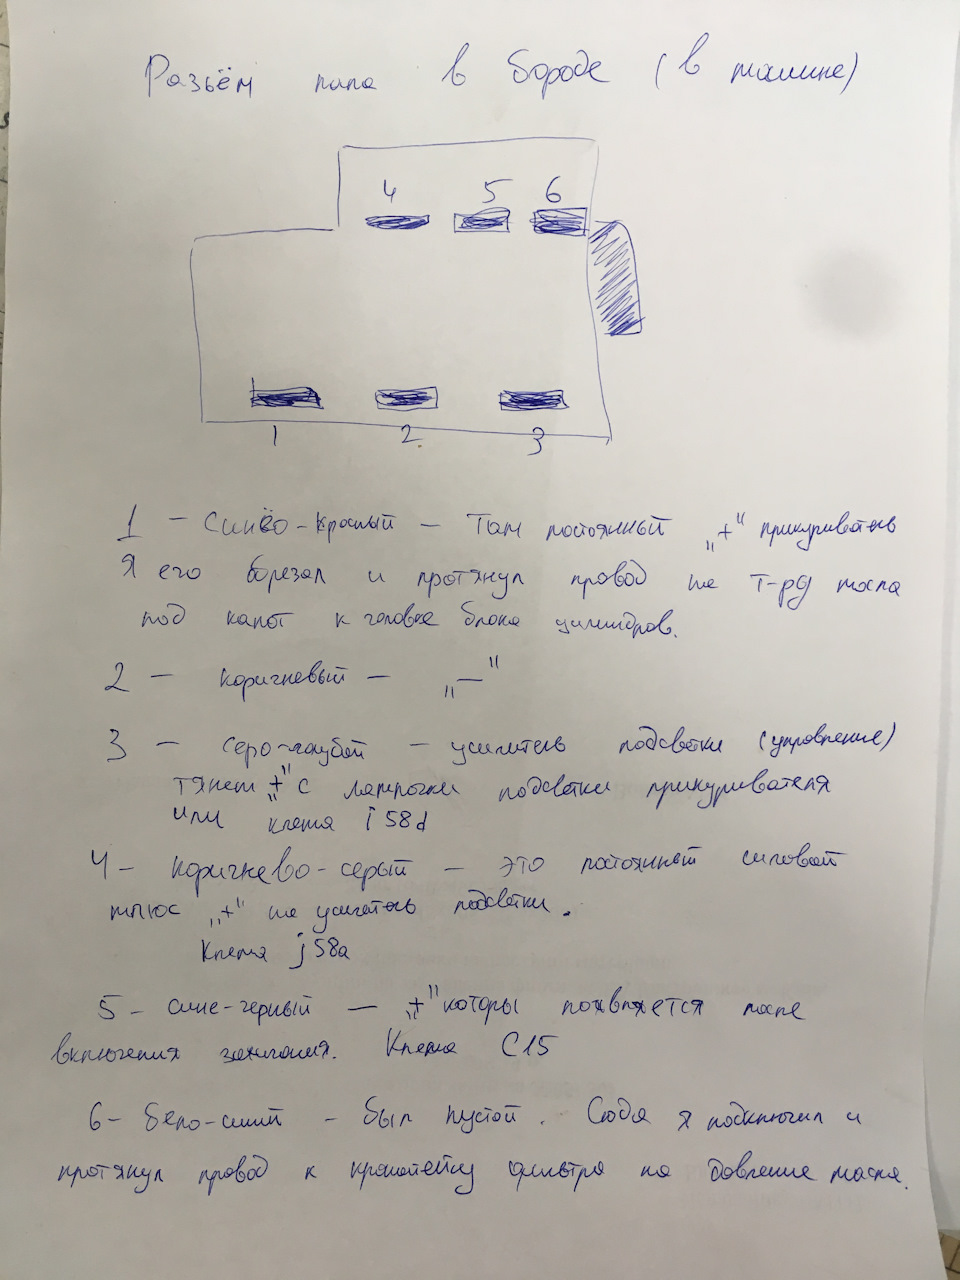 Разъём папа в бороде (в машине)
4 5 6
1 2. 3
1 – Синё-красный – Там постоянный „+" прикуриватель
Я его борезал и протянул провод на Т-ру масла
под капот к головке блока цилиндров.
2 – коричневый – „—"
3 – серо-голубой – усилитель подсветки (управление)
тянет „+" с лампочки подсветки прикуривателя
или клема i 58d
4 – коричнево-серый – это постоянный силовой
плюс „+" на усилитель подсветки.
Клема j 58a
5 – сине-черный – „+" которы появляется после
включения зажигания. Клема C15
6 – бело-синий – был пустой. Сюда я подключил и
протянул провод к кронштейну фильтра на давление масла.